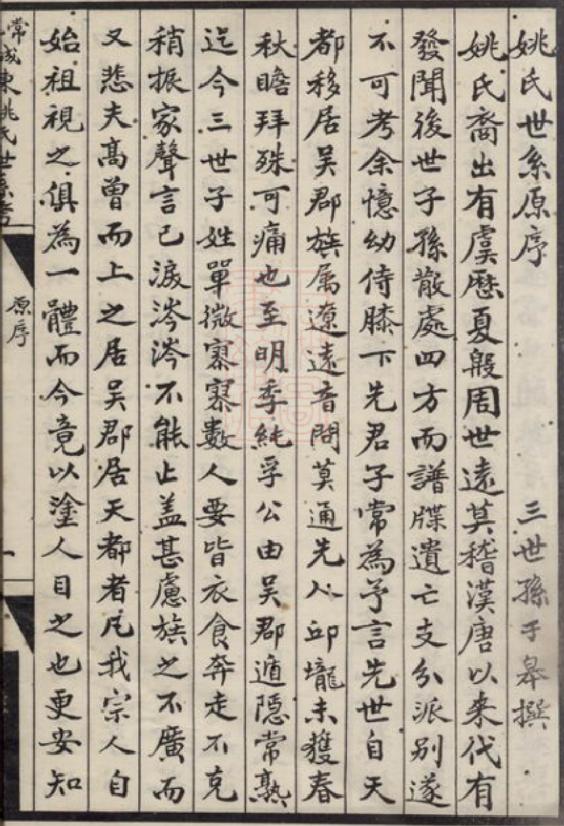 姚氏世系原序
三世孫于皋撰
姚氏裔出有虞歷夏殷周世遠莫稽漢唐以來代有
發聞後世子孫散處四方而譜牒遺亡支分派別遂
不可考余憶幼侍膝下先君子常為予言先世自天
都移居吳郡族属遼遠音問莫通先人邱壠未獲春
秋瞻拜殊可痛也至明季純孚公由吳郡遁隱常熟
迄今三世子姓單微寥寥數人要皆衣食奔走不克
稍振家聲言已淚涔涔不能止盖甚慮族之不廣而
又悲夫高曾而上之居吳郡居天都者凡我宗人自
始祖視之俱為一體而今竟以塗人目之也更安知
常城東姚氏世系考
原序
一